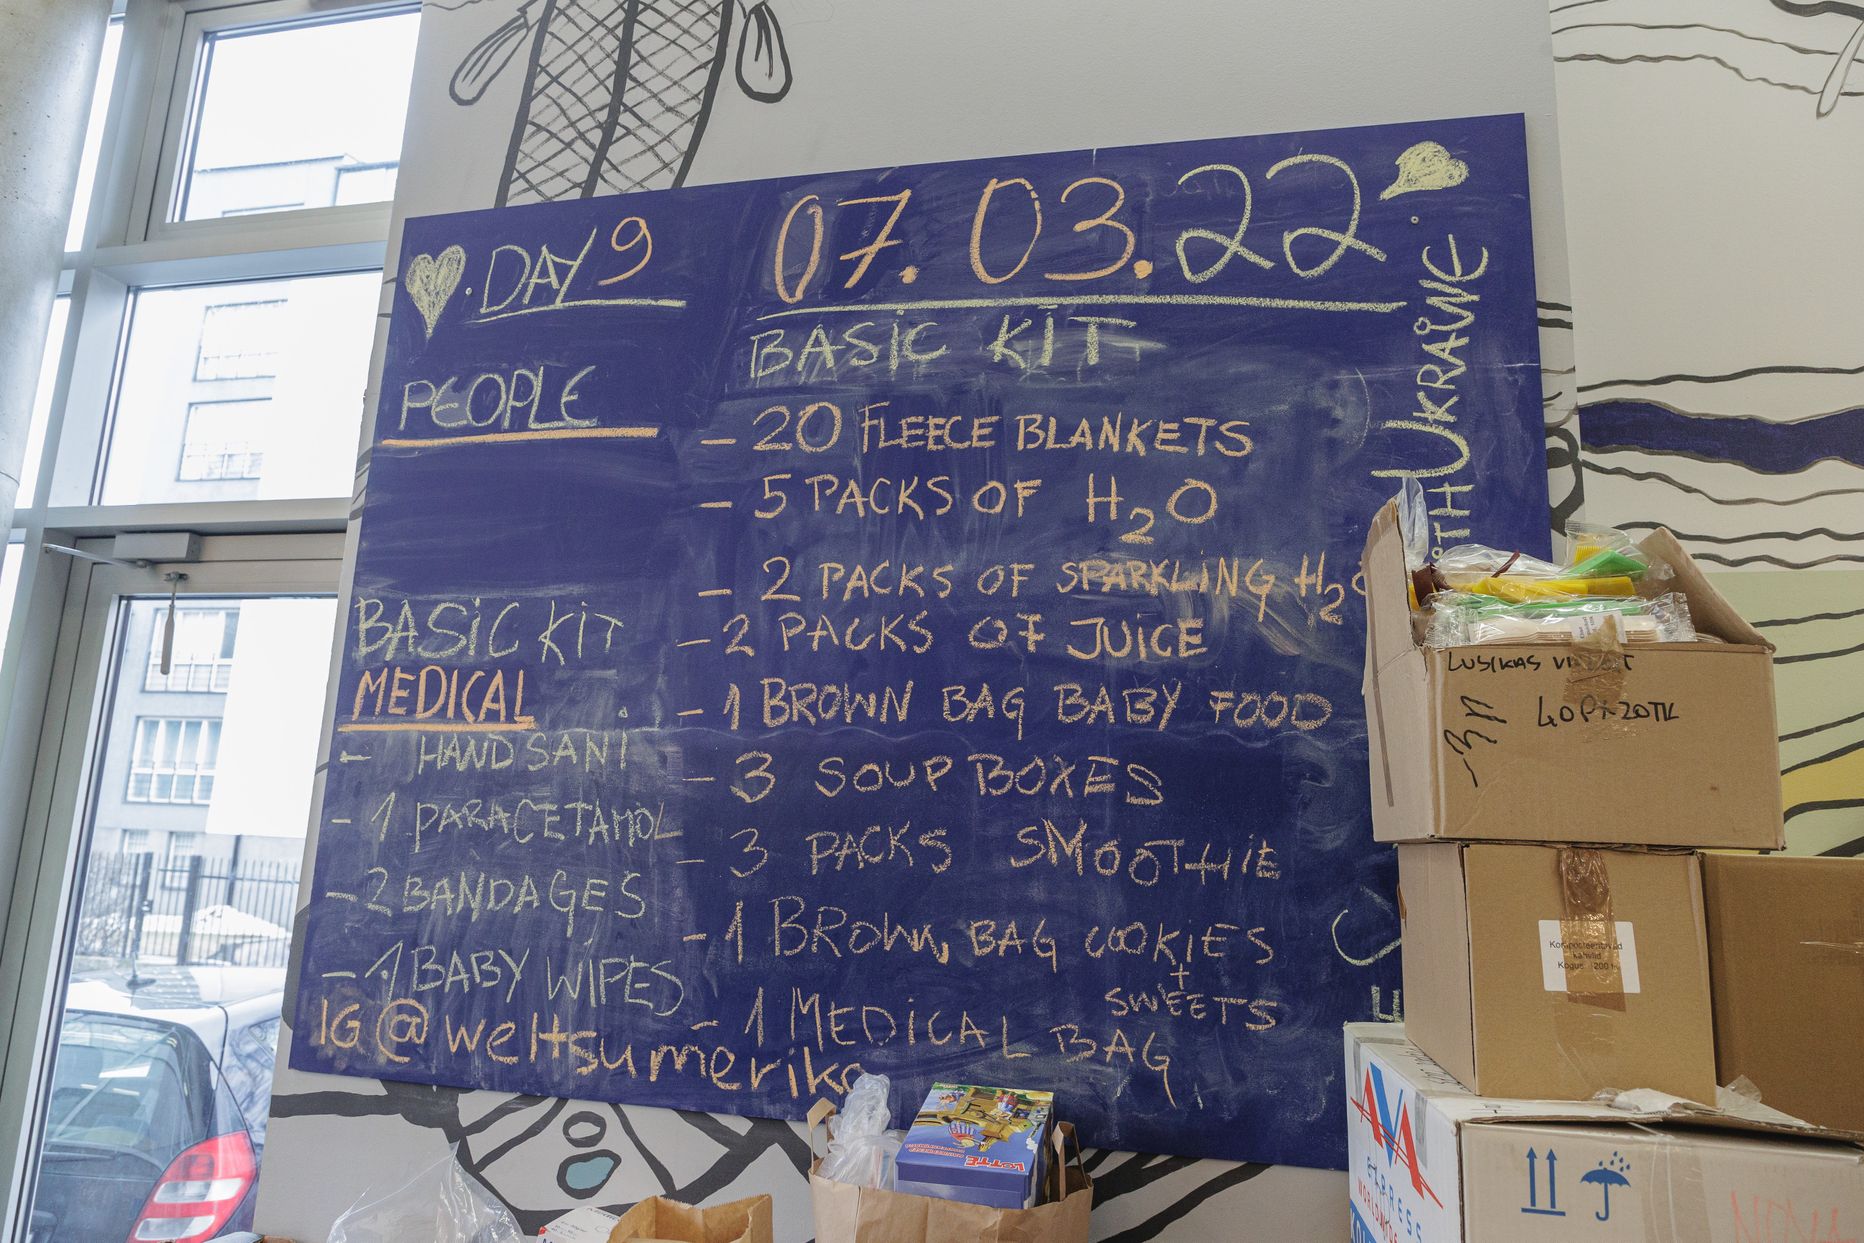 DAY 9
07.03.22
PEOPLE
BASIC KIT
- 20 FLEECE BLANKETS
- 5 PACKS OF H₂O
- 2 PACKS OF SPARKLING H₂O
- 2 PACKS OF JUICE
- 1 BROWN BAG BABY FOOD
- 3 SOUP BOXES
- 3 PACKS SMOOTHIE
- 1 BROWN BAG COOKIES
+
SWEETS
- 1 MEDICAL BAG
BASIC KIT
MEDICAL
- HAND SANI
- 1 PARACETAMOL
- 2 BANDAGES
- 1 BABY WIPES
IG@weltsumerike
UKRAINE
LUSIKAS
-3П
Komposteeritavad
kahvlid
Kogus: 200 tk
AVA
EXPRESS
LOTTE